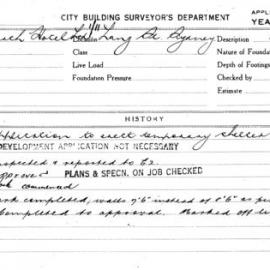 CITY BUILDING SURVEYOR'S DEPARTMENT
APPLI
YEA
Hotel Ltd Lang Rd Sydney
Description
Class
Nature of Foundat
Live Load
Depth of Footings
Foundation Pressure
Checked
Estimated
HISTORY
application to erect temporary shelter
DEVELOPMENT APPLICATION NOT NECESSARY
inspected & reported to
PLANS & SPECN. ON JOB CHECKED
commenced
work completed, walls 9'6" instead of 8'6" as pe
Completed to approval. Marked off